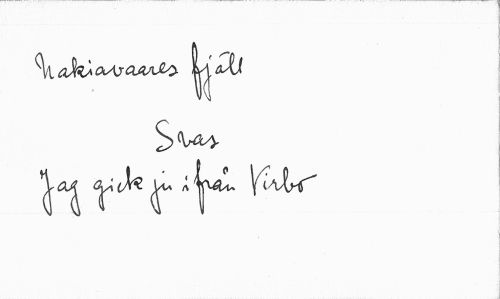 Nakiavaares fjäll
Svas
Jag gick ju ifrån Virbo